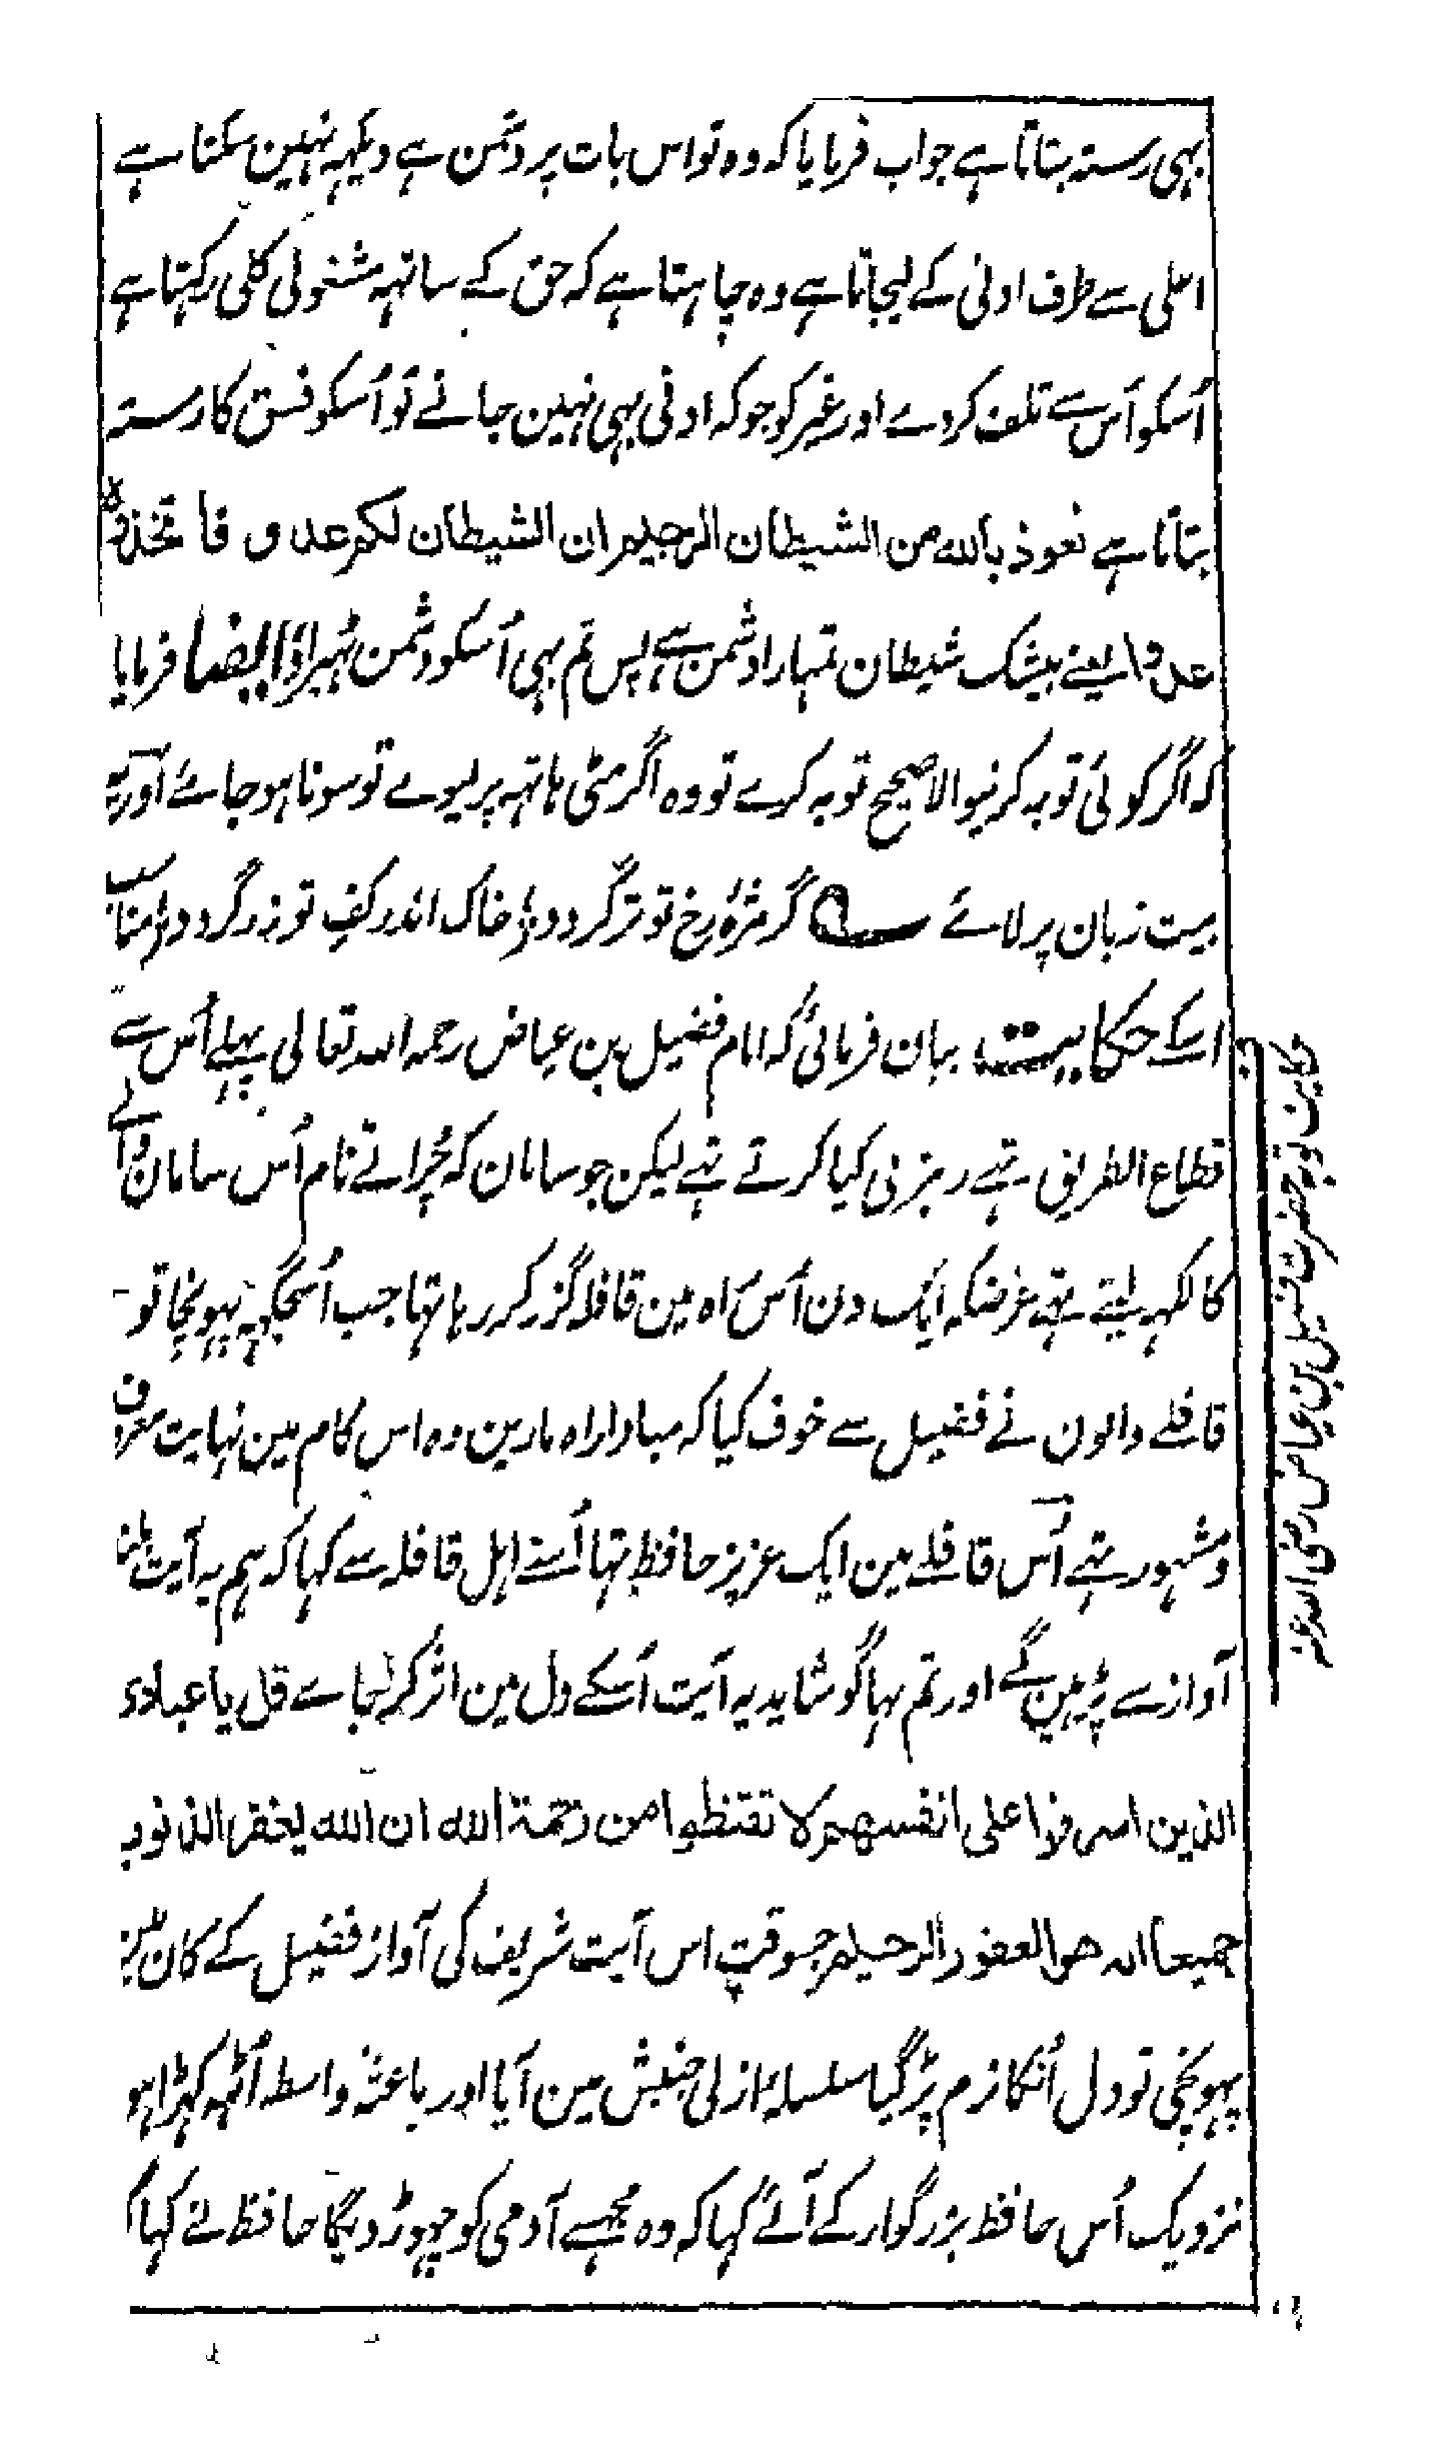 بہی رستہ بتاتا ہے جواب فرمایا کہ وہ تو اس بات پر دشمن ہے دیکہہ نہین سکتا ہے
اعلی سے طرف ادنیٰ کے لیجاتا ہے وہ چاہتا ہے کہ حق کے ساتہہ مشغولی کلی رکہتا ہے
اُسکو اُس سے تلف کردے اور غیر کو جو کہ ادنی بہی نہین جانے تو اُسکو فسق کا رستہ
بتاتا ہے نعوذ بالله من الشيطان الرجيم ان الشيطان لكم عدو فاتخذوه
عدوا یعنے بیشک شیطان تمہارا دشمن ہے پس تم بہی اُسکو دشمن ٹہیراؤ ایضا فرمایا
کہ اگر کوئی توبہ کرنیوالا صحیح توبہ کرے تو وہ اگر مٹی ہاتہہ پر لیوے تو سونا ہو جائے اور یہ
بیت زبان پر لائے گر مژۂ رخ تو تر گردد خاک اندر کفِ تو زر گردد مناسب
اسکے حکایت بیان فرمائی کہ امام فضیل بن عیاض رحمہ اللہ تعالی پہلے اُس سے
قطاع الطریق تہے رہزنی کیا کرتے تہے لیکن جو سامان کہ چُراتے نام اُس سامان والے
کا لکہہ لیتے تہے غرضکہ ایک دن اُس راہ مین قافلہ گزر کر رہا تہا جب اُسجگہہ پہونچا تو
قافلے والون نے فضیل سے خوف کیا کہ مبادا راہ مارین وہ اس کام مین نہایت معروف
و مشہور تہے اُس قافلے مین ایک عزیز حافظ تہا اُسنے اہل قافلہ سے کہا کہ ہم یہ آیت بلند
آواز سے پڑہین گے اور تم بہاگو شاید یہ آیت اُسکے دل مین اثر کر لیجاے قل یا عبادی
الذین اسرفوا علی انفسهم لا تقنطوا من رحمة الله ان الله یغفر الذنوب
جمیعا انه هو الغفور الرحیم جسوقت اس آیت شریف کی آواز فضیل کے کان مین
پہونچی تو دل اُنکا نرم پڑگیا سلسلۂ ازلی جنبش مین آیا اور باعث واسطہ اُٹہہ کہڑا ہو
نزدیک اُس حافظ بزرگوار کے آئے کہا کہ وہ مجہسے آدمی کو چہوڑ دیگا حافظ نے کہا کہ
حکایت توبہ حضرت فضیل بن عیاض رضی اللہ عنہ